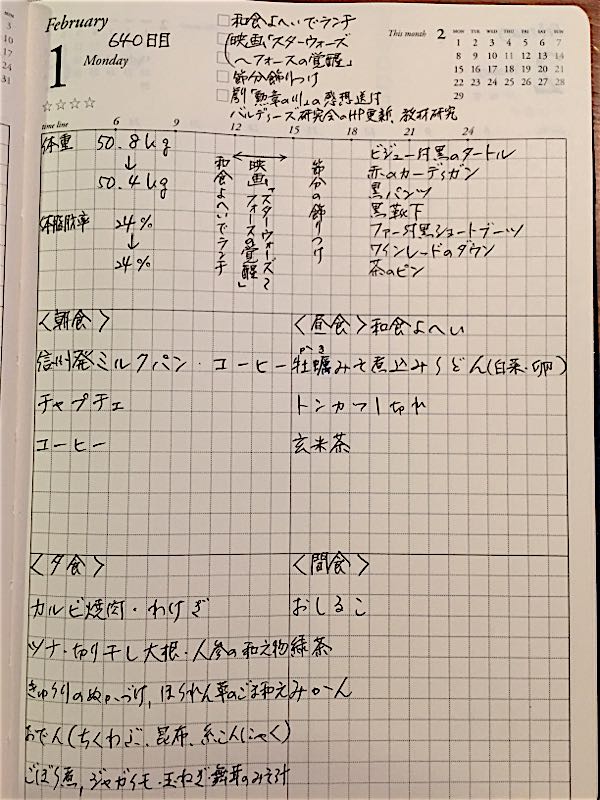 February
1
Monday
640日目
☆☆☆☆
□和食よへいでランチ
□映画「スターウォーズ
□～フォースの覚醒」
□節分飾りつけ
□劇「勲章の川」の感想送付
□バルディーズ研究会のHP更新、教材研究
This month 2
MON TUE WED THU FRI SAT SUN
1 2 3 4 5 6 7
8 9 10 11 12 13 14
15 16 17 18 19 20 21
22 23 24 25 26 27 28
29
MON
3
10
17
24
31
time line 6 9 12 15 18 21 24
体重 50.8kg
↓
50.4kg
体脂肪率 24%
↓
24%
和食よへいでランチ
映画「スターウォーズ～
フォースの覚醒」
節分の飾りつけ
ビジュー付黒のタートル
赤のカーディガン
黒パンツ
黒靴下
ファー付黒ショートブーツ
ワインレードのダウン
茶のピン
〈朝食〉
信州発ミルクパン・コーヒー
チャプチェ
コーヒー
〈昼食〉和食よへい
牡蠣みそ煮込みうどん(白菜・卵)
トンカツ1切れ
玄米茶
〈夕食〉
カルビ焼肉・わけぎ
ツナ・切り干し大根・人参の和え物
きゅうりのぬかづけ,ほうれん草のごま和え
おでん(ちくわぶ、昆布、糸こんにゃく)
ごぼう煮,ジャガイモ・玉ねぎ・舞茸のみそ汁
〈間食〉
おしるこ
緑茶
みかん